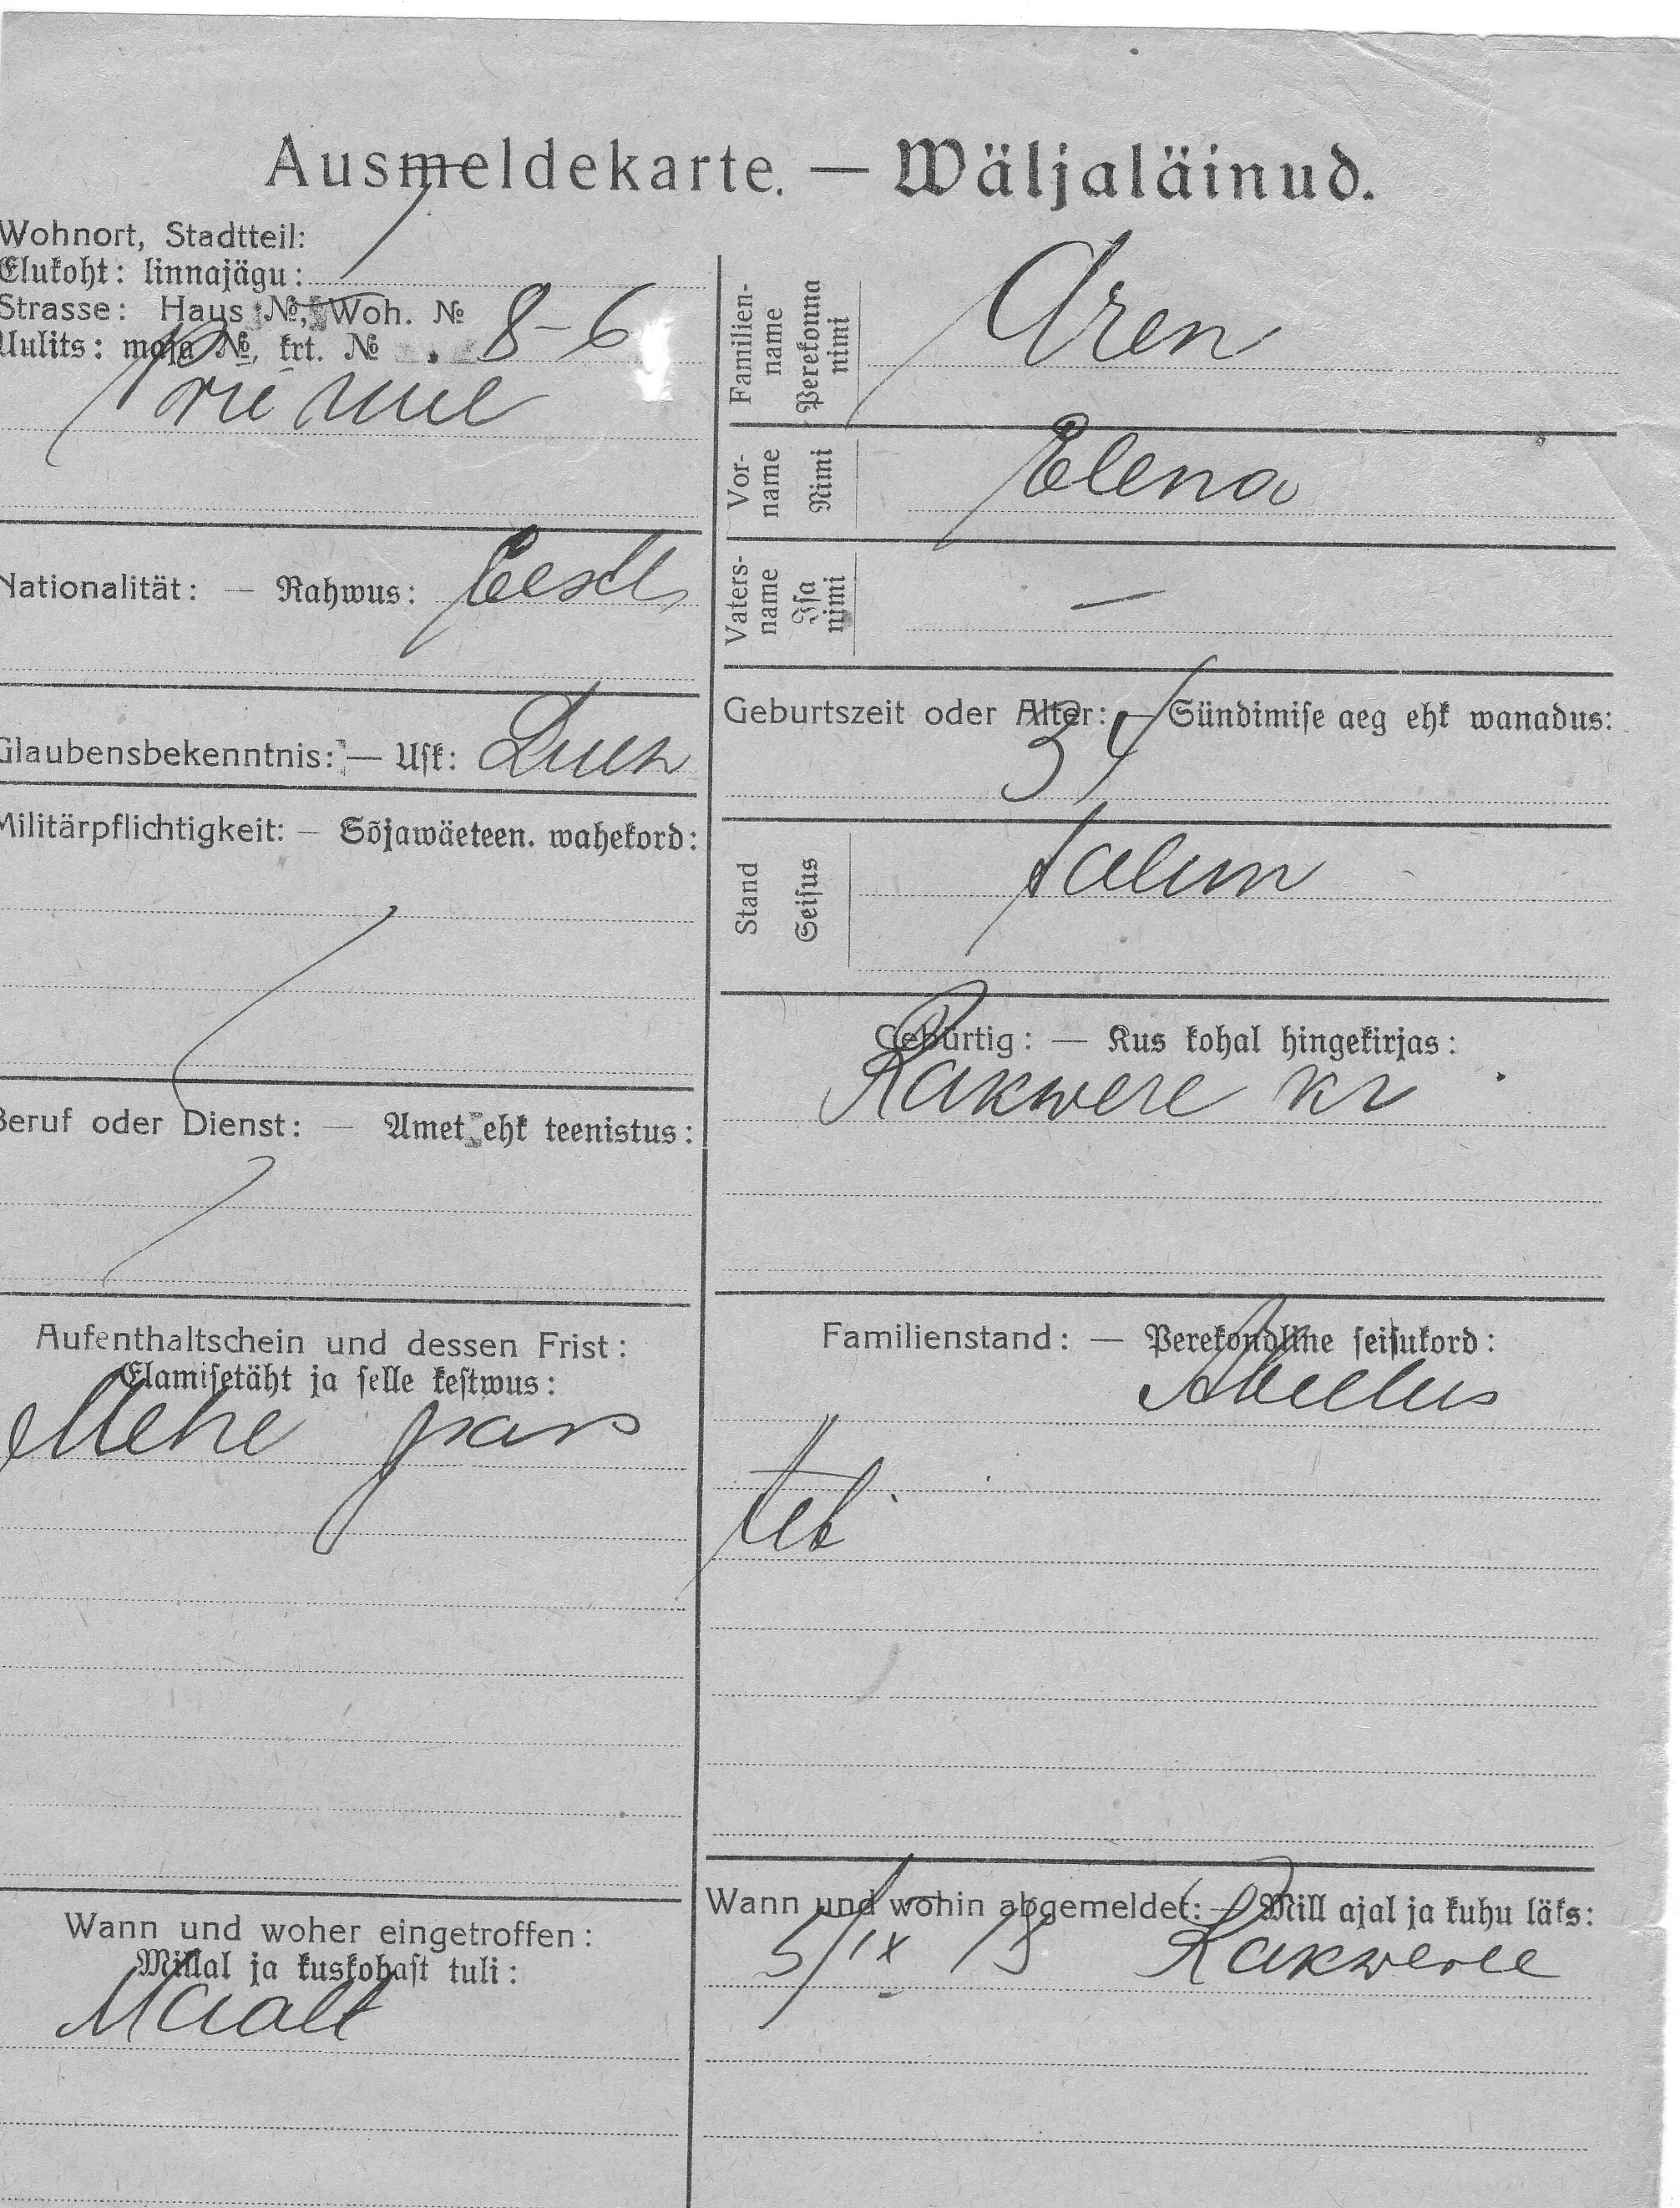 Ausmeldekarte. — Wäljaläinud.
Wohnort, Stadtteil:
Elukoht: linnajägu:
Strasse: Haus №, Woh. №
Uulits: maja №, krt. № 8-6
Nationalität: — Rahwus: Eesti
Glaubensbekenntnis: — Usk: Luth
Militärpflichtigkeit: — Sõjawäeteen. wahekord:
Beruf oder Dienst: — Amet ehk teenistus:
Aufenthaltschein und dessen Frist:
Elamisetäht ja selle kestwus:
Mehe pass
Wann und woher eingetroffen:
Millal ja kuskohast tuli:
Maalt
Familien-
name
Perekonna
nimi
Aren
Vor-
name
Nimi
Elena
Vaters-
name
Isa
nimi
—
Geburtszeit oder Alter: — Sündimise aeg ehk wanadus:
34
Stand
Seisus
talun
Gebürtig: — Kus kohal hingekirjas:
Rakwere kr
Familienstand: — Perekondline seisukord:
Abielus
Wann und wohin abgemeldet: — Mill ajal ja kuhu läks:
5/IX 18 Rakweree